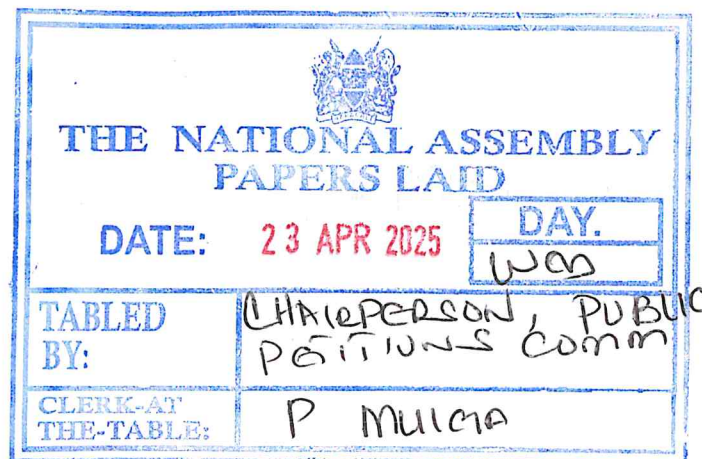 THE NATIONAL ASSEMBLY
PAPERS LAID
DATE: 23 APR 2025
DAY.
WED
TABLED BY: CHAIRPERSON, PUBLIC
PETITIONS COMM
CLERK-AT
THE-TABLE: P